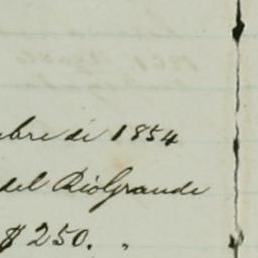 bre de 1854
del RioGrande
$250. "